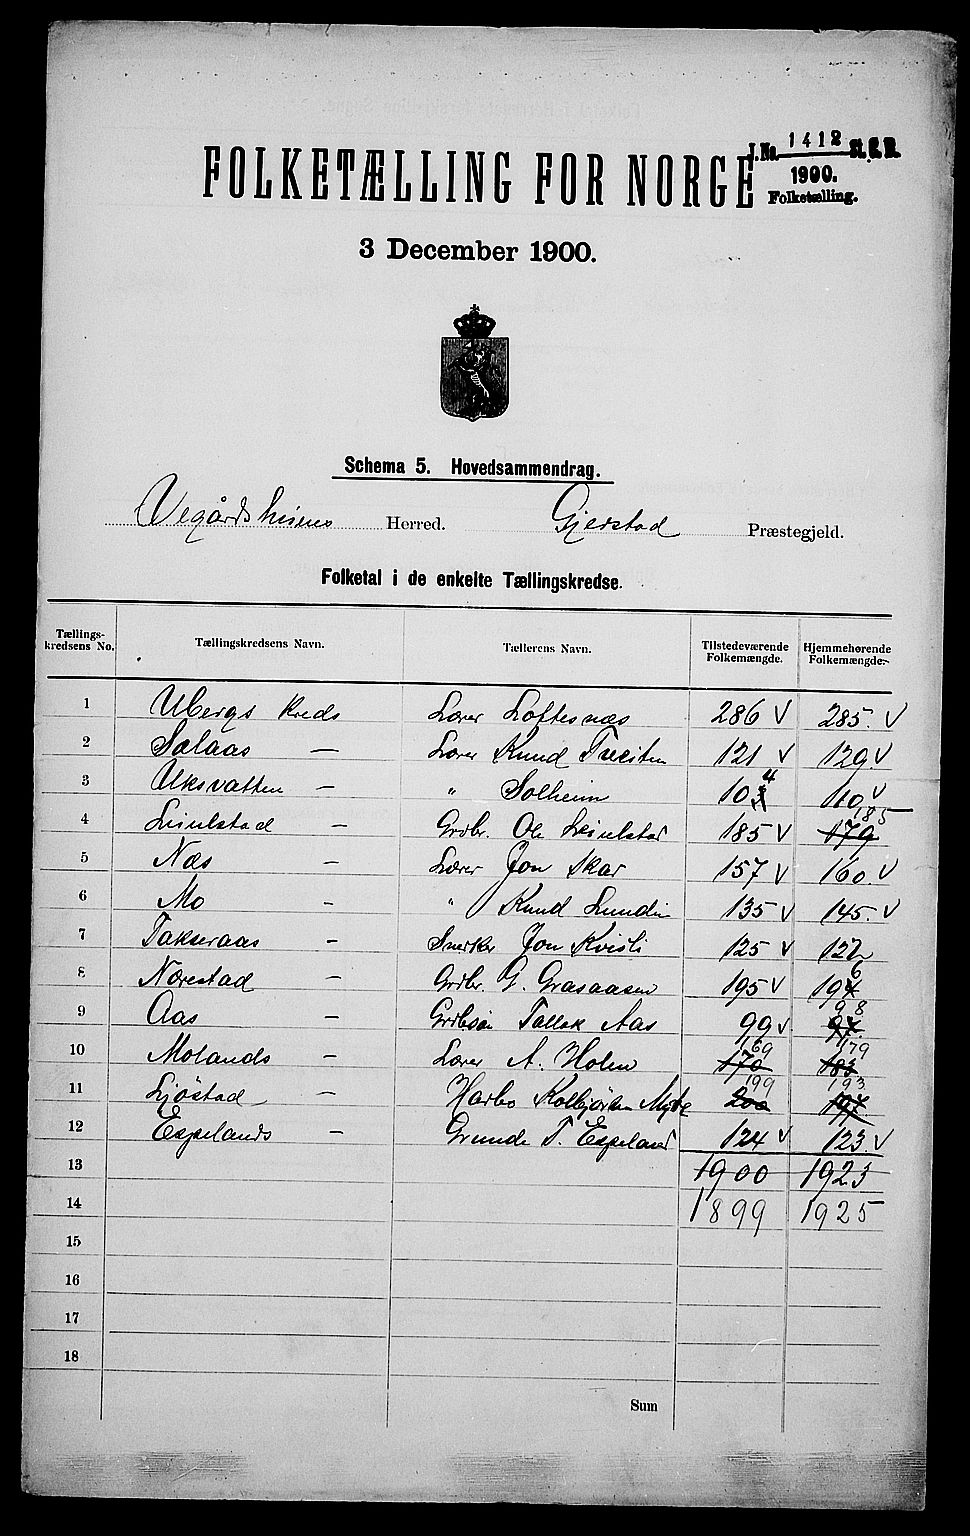 FOLKETÆLLING FOR NORGE
J. No. 1412 St. C. B.
1900.
Folketælling.
3 December 1900.
Schema 5. Hovedsammendrag.
Vegårdsheiens Herred. Gjerstad Præstegjeld.
Folketal i de enkelte Tællingskredse.
Tællings-kredsens No. Tællingskredsens Navn. Tællerens Navn. Tilstedeværende Folkemængde. Hjemmehørende Folkemængde.
1 Ubergs Kreds Lærer Loftesnæs 286 √ 285. √
2 Sælaas — Lærer Knud Treiten 121 √ 129. √
3 Uksvatten — " Solheim 104 110 √
4 Leiulstad — Grdbr. Ole Leiulstad 185 √ 179 185
5 Næs — Lærer Jon Skar 157 √ 160. √
6 Mo " Knud Lundin 135 √ 145. √
7 Takseraas — Snedker Jon Kvisli 125 √ 122
8 Nærestad — Grdbr. G. Grasaasen 195 √ 196
9 Aas — Grdbsön Tallak Aas 99 √ 97. 98
10 Molands — Lærer A. Holen 170 169 183 179
11 Ljöstad — Harbo Kolbjörnsen Myhre 200 199 197 193
12 Espelands — Grunde T. Espeland 124 √ 123. √
13 1900 1923
14 1899 1925
15
16
17
18
Sum